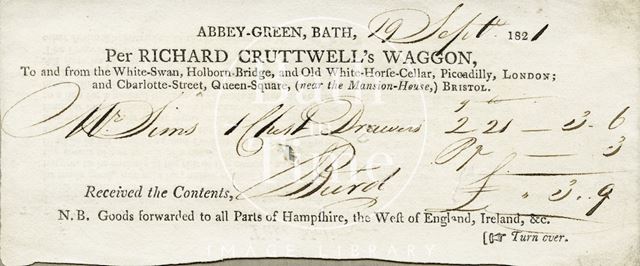 ABBEY-GREEN, BATH, 19 Septr. 1821
Per RICHARD CRUTTWELL's WAGGON,
To and from the White-Swan, Holborn-Bridge, and Old White-Horse-Cellar, Picoadilly, LONDON;
and Charlotte-Street, Queen-Square, (near the Mansion-House,) BRISTOL.
Mr. Sims 1 Chest Drawers 2 21 — 3 . 6
— 3
£ " 3 . 9
Received the Contents,
N.B. Goods forwarded to all Parts of Hampshire, the West of England, Ireland, &c.
[☞ Turn over.
Bath in Time
IMAGE LIBRARY